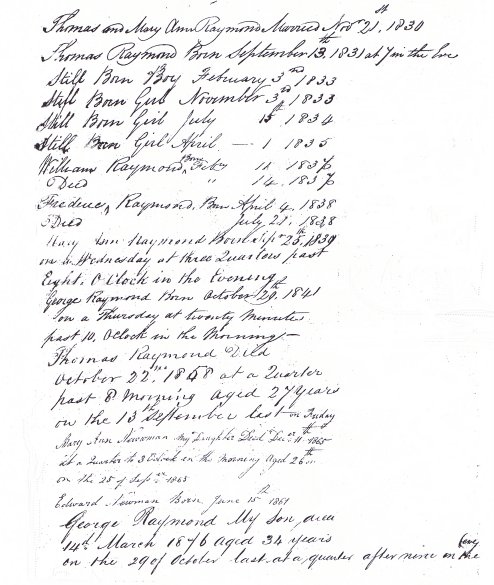 Thomas and Mary Ann Raymond Married Novr 21st, 1830
Thomas Raymond Born September 13th, 1831 at 7 in the Eve
Still Born Boy February 3rd 1833
Still Born Girl November 3rd 1833
Still Born Girl July 15th 1834
Still Born Girl April — 1 1835
William Raymond Born Feby 11 1837
Died " 14. 1837
Frederick Raymond. Born April 4. 1838
Died July 21. 1838
Mary Ann Raymond Born Sepr 25th, 1839
on a Wednesday at three Quarters past
Eight. O Clock in the Evening
George Raymond Born October 29th. 1841
on a Thursday at twenty Minutes
past 10. Oclock in the Morning —
Thomas Raymond Died
October 22nd. 1858 at a Quarter
past 8 Morning aged 27 Years
on the 13th September last on Friday
Mary Ann Newman my Daughter Died Decr 11th 1865
at a Quarter to 3 OClock in the Morning Aged 26
on the 25 of Sepr 1865
Edward Newman Born June 15th 1861
George Raymond My Son, died
14th March 1876 aged 34 years
on the 29 of October last. at a quarter after nine in the
Eveg